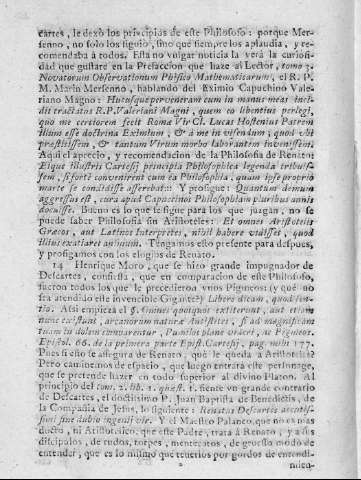 cartes, le dexò los principios de este Philosofo: porque Mer-
senno, no solo los siguiò, sino que siempre los aplaudia, y re-
comendaba à todos. Esta no vulgar noticia la verà la curiosi-
dad que gustare en la Prefaccion que haze al Lector, tomo 3.
Novatorum Observationum Phisico Mathematicarum, el R. P.
M. Marin Mersenno, hablando del Eximio Capuchino Vale-
riano Magno: Hucusque perveneram cum in manus meas inci-
dit tractatus R.P. Valeriani Magni, quem eo libentius perlegi,
quo me certiorem fecit Roma Vir Cl. Lucas Hostenius Patrem
illum esse doctrina Eximium, & à me in visendum, quod ubi
præstitissem, & tantum Virum morbo laborantem invenissem.
Aqui el aprecio, y recomendacion de la Philosofia de Renato:
Eique illustris Cartesij principia Philosophica legenda tribuis-
sem, si fortè convenirent cum ea Philosophia, quam ipse proprio
marte se condidisse asserebat: Y prosigue: Quantum demum
aggressus est, cura apud Capucinos Philosophiam pluribus annis
docuisse. Bueno es lo que se sigue para los que juzgan, no se
puede saber Philosofia sin Aristoteles: Et omnes Aristotelis
Græcos, aut Latinos Interpretes, nihil habere vidisses, quod
illius exatiaret animum. Tengamos esto presente para despues,
y prosigamos con los elogios de Renato.
14 Henrique Moro, que se hizo grande impugnador de
Descartes, confiesa, que en comparacion de este Philosofo,
fueron todos los que le precedieron vnos Pigmeos: (y què no
sea atendido este invencible Gigante?) Libere dicam, quod sen-
tio. Assi empieza el §. Omnes quotquot extiterunt, aut etiam
nunc existunt, arcanorum naturæ Antistites, si ad magnificam
tuam indolem comparentur, Pumilos plane videri, ac Pigmeos.
Epistol. 66. de la primera parte Epist. Cartesij, pag. mihi 177.
Pues si esto se assegura de Renato, què le queda à Aristoteles?
Pero caminemos de espacio, que luego entrarà este personage,
que se pretende hazer en todo superior al divino Platon. Al
principio del tom. 2. lib. 2. quæst. 1. siente vn grande contrario
de Descartes, el doctissimo P. Juan Baptista de Benedictis, de
la Compañia de Jesus, lo siguiente: Renatus Descartes acutis-
simi sine dubio ingenij vir. Y el Maestro Palanco, que no es mas
docto, ni Aristotelico, que este Padre, trata à Renato, y à sus
discipulos, de rudos, torpes, mentecatos, de grosero modo de
entender, que es lo mismo que tenerlos por gordos de entendi-
mien-